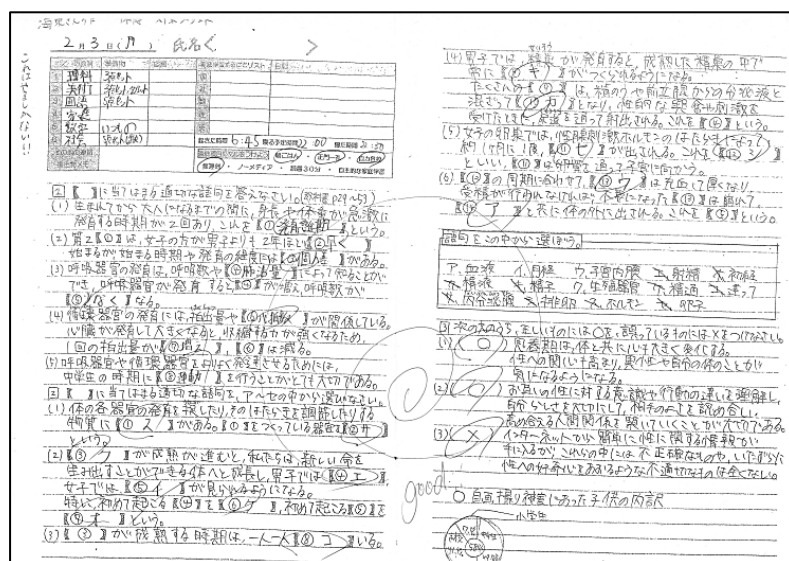 2月3日(月) 氏名< >
理科
国語
数学 いつもの
社会
6:45
1 【 】に当てはまる適切な語句を答えなさい。
(1) 生まれてから大人になるまでの間に、身長や体重が急激に
発育する時期が2回あり、これを【①発育急進期】という。
(2) 第2【①】は、女子の方が男子よりも2年ほど【②早く】
始まるが始まる時期や発育の程度には【③個人差】がある。
(3) 呼吸器官の発育は、呼吸数や【④肺活量】によって知ることが
でき、呼吸器官が発育すると【④】が増え、呼吸数が
【⑤少なく】なる。
(4) 循環器官の発育には、拍出量や【⑥心拍数】が関係している。
心臓が発育して大きくなると、収縮する力が強くなるため、
1回の拍出量が【⑦増え】、【⑥】は減る。
(5) 呼吸器官や循環器官をより良く発達させるためには、
中学生の時期に【⑧運動】を行うことがとても大切である。
2 【 】に当てはまる適切な語句を、ア〜セの中から選びなさい。
(1) 体の各器官の発育を促したり、そのはたらきを調節したりする
物質に【①ス】がある。【①】をつくっている器官を【②サ】
という。
(2)【③ク】が成熟が進むと、私たちは、新しい命を
生み出すことができる体へと成長し、男子では【④エ】、
女子では【⑤イ】が見られるようになる。
特に、初めて起こる【④】を【⑥ケ】、初めて起こる【⑤】を
【⑦オ】という。
(3)【③】が成熟する時期は、一人一人【⑧コ】いる。
(4) 男子では、精巣が発育すると、成熟した精巣の中で
常に【⑨キ】がつくられるようになる。
たくさんの【⑨】は、精のうや前立腺からの分泌液と
混ざって【⑩カ】となり、性的な興奮や刺激を
受けたときに、尿道を通って射出される。これを【④】という。
(5) 女子の卵巣では、性腺刺激ホルモンのはたらきによって
約1か月に1度、【⑪セ】が出される。これを【⑫シ】
といい、【⑪】は卵管を通って子宮に向かう。
(6)【⑫】の周期に合わせて、【⑬ウ】は充血して厚くなり
受精が行われなければ、不要になった【⑬】は崩れて、
【⑭ア】と共に体の外に出される。これを【⑤】という。
語句をこの中から選ぼう。
ア.血液 イ.月経 ウ.子宮内膜 エ.射精 オ.初経
カ.精液 キ.精子 ク.生殖器官 ケ.精通 コ.違って
サ.内分泌腺 シ.排卵 ス.ホルモン セ.卵子
3 次の文のうち、正しいものには○を、誤っているものには×をつけなさい。
(1)(○) 思春期は、体と共に心も大きく変化する。
性への関心も高まり、異性や自分の体のことが
気になるようになる。
(2)(○) お互いの性に対する意識や行動の違いを理解し、
自分らしさを大切にして、相手のよさを認め合い、
高め合える人間関係を築いていくことが大切である。
(3)(×) インターネットから簡単に性に関する情報が
手に入るが、これらの中には不正確なものや、いたずらに
性への好奇心をあおるような不適切なものは全くない。
good!
○ 自画撮り被害にあった子供の内訳
小学生